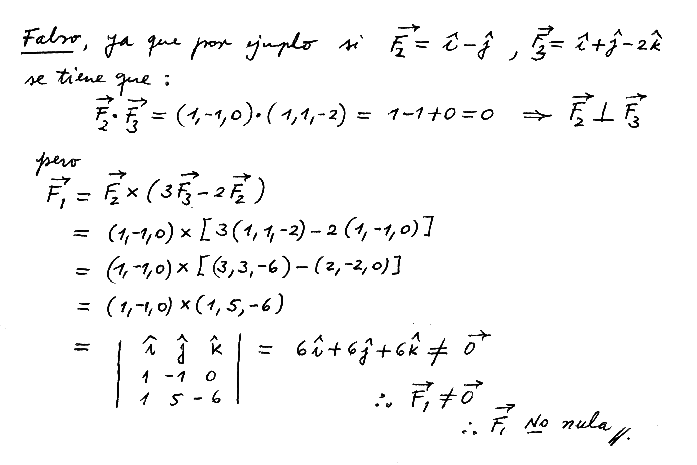 Falso, ya que por ejemplo si $\vec{F_2} = \hat{i} - \hat{j}$ , $\vec{F_3} = \hat{i} + \hat{j} - 2\hat{k}$
se tiene que :
$\vec{F_2} \cdot \vec{F_3} = (1,-1,0) \cdot (1,1,-2) = 1-1+0 = 0 \Rightarrow \vec{F_2} \perp \vec{F_3}$
pero
$\vec{F_1} = \vec{F_2} \times (3\vec{F_3} - 2\vec{F_2})$
$= (1,-1,0) \times [3(1,1,-2) - 2(1,-1,0)]$
$= (1,-1,0) \times [(3,3,-6) - (2,-2,0)]$
$= (1,-1,0) \times (1,5,-6)$
$= \begin{vmatrix} \hat{i} & \hat{j} & \hat{k} \\ 1 & -1 & 0 \\ 1 & 5 & -6 \end{vmatrix} = 6\hat{i} + 6\hat{j} + 6\hat{k} \neq \vec{0}$
$\therefore \vec{F_1} \neq \vec{0}$
$\therefore \vec{F_1}$ No nula //.